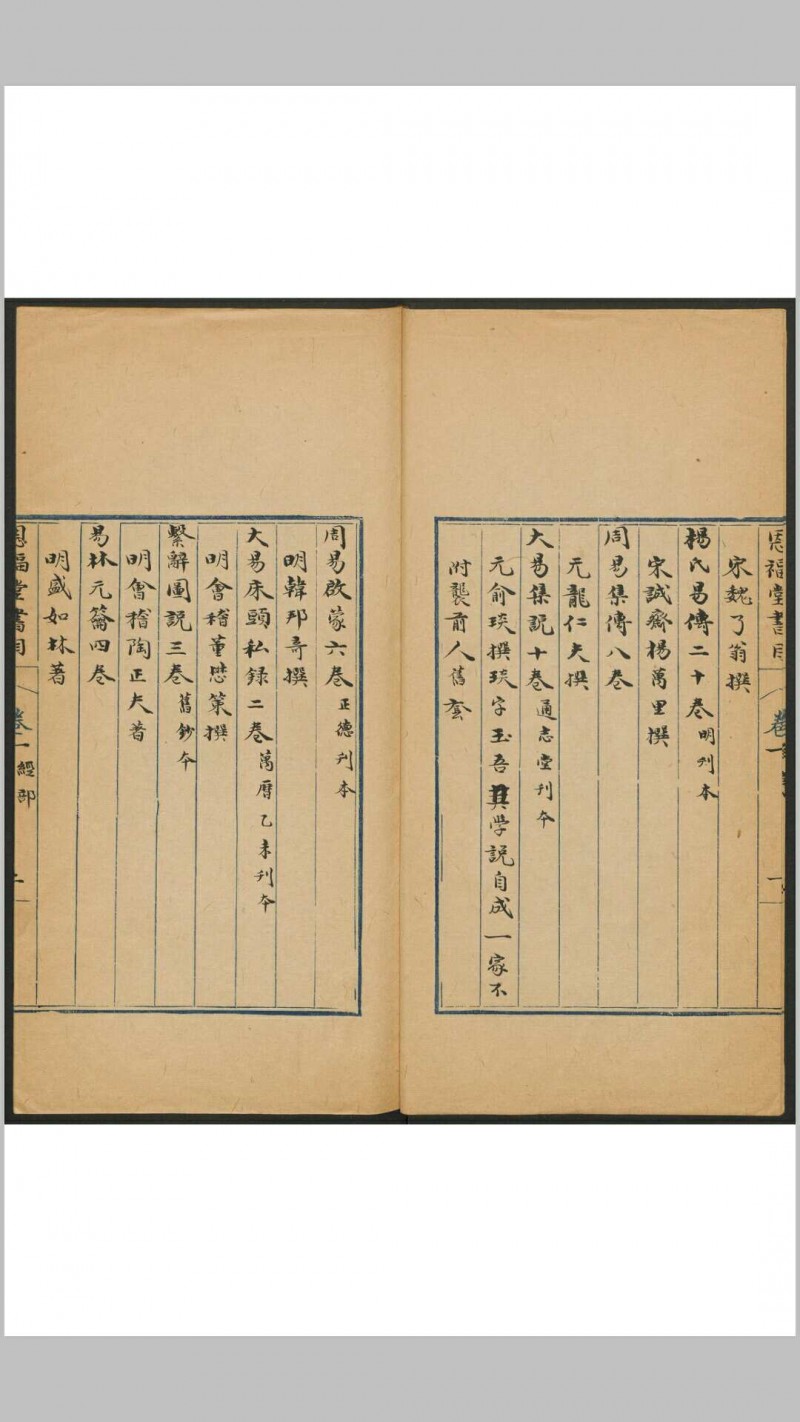 恩福堂書目 卷一 一
宋魏了翁撰
楊氏易傳二十卷明刋本
宋誠齋楊萬里撰
周易集傳八卷
元龍仁夫撰
大易集説十卷通志堂刋本
元俞琰撰琰字玉吾其学説自成一家不
附襲前人舊套
周易啟蒙六卷正德刋本
明韓邦奇撰
大易床頭私録二卷萬曆乙未刋本
明會稽董懋策撰
繫辭圖説三卷舊鈔本
明會稽陶正夫著
易林元籥四卷
明盛如林著
恩福堂書目 卷一經部 二